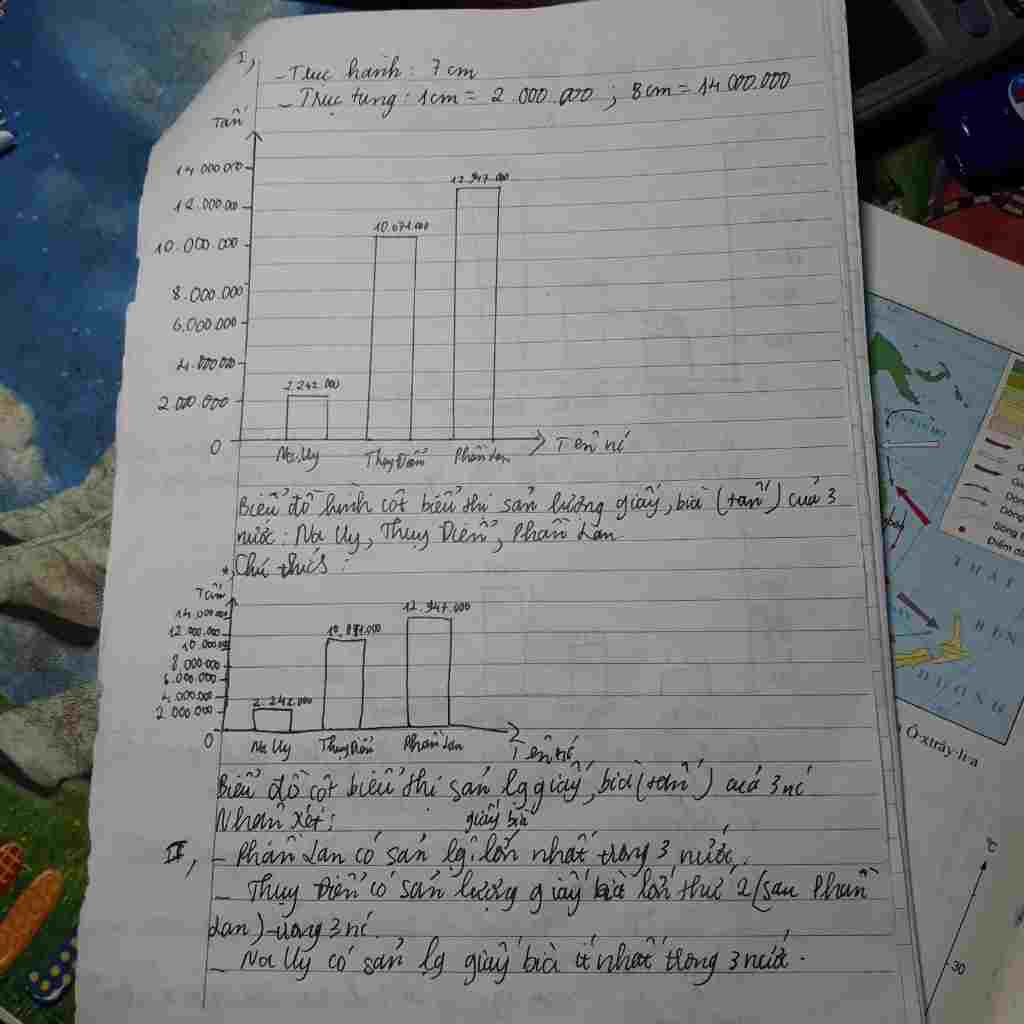 I,
- Trục hành: 7 cm
- Trục tung: 1cm = 2.000.000 ; 8cm = 14.000.000
Tấn
14.000.000
12.000.000
10.000.000
8.000.000
6.000.000
4.000.000
2.000.000
0
2.242.000
10.071.000
12.947.000
Na Uy
Thụy Điển
Phần Lan
Tên nc
Biểu đồ hình cột biểu thị sản lượng giấy, bìa (tấn) của 3
nước: Na Uy, Thụy Điển, Phần Lan
*, Chú thích:
Tấn
14.000.000
12.000.000
10.000.000
8.000.000
6.000.000
4.000.000
2.000.000
0
2.242.000
10.071.000
12.947.000
Na Uy
Thụy Điển
Phần Lan
Tên nc
Biểu đồ cột biểu thị sản lg giấy, bìa (tấn) của 3 nc
Nhận xét:
giấy bìa
II, - Phần Lan có sản lg lớn nhất trong 3 nước.
- Thụy Điển có sản lượng giấy bìa lớn thứ 2 (sau Phần
Lan) trong 3 nc.
- Na Uy có sản lg giấy bìa ít nhất trong 3 nước.
THÁI
BÌN
DƯƠNG
Ô-xtrây-li-a
°C
30
Dòng
Dòng
Sông
Điểm